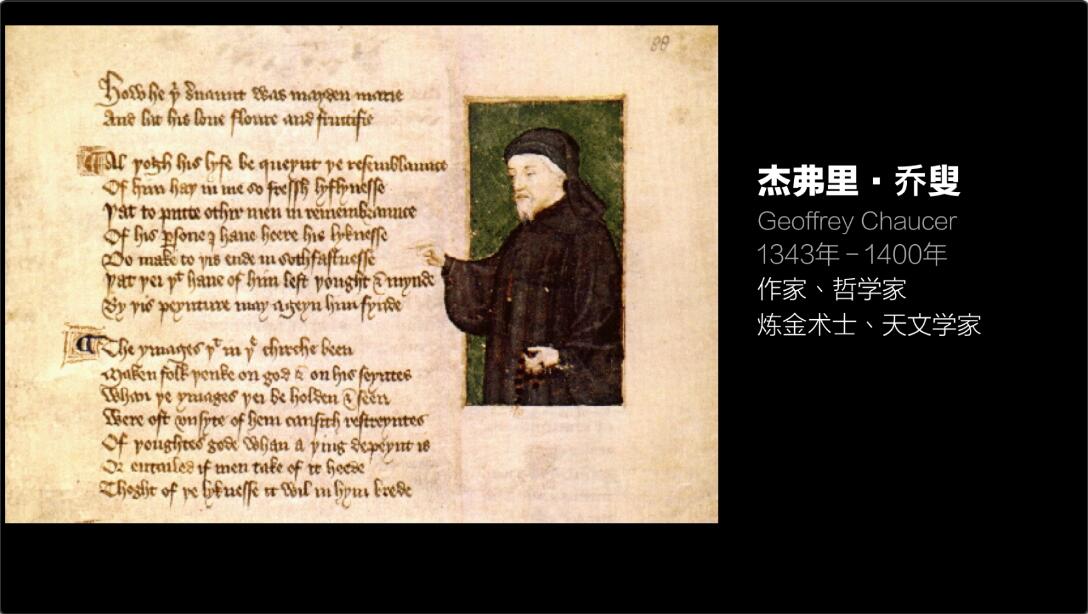 88
How he þͥ s̉uaunt was mayden marie
And lat his loue floure and fructifie
Al þogh his lyfe be queynt þe resemblaunce
Of him haþ in me so fressh lyflynesse
Þat to putte othir men in remembraunce
Of his ꝑsone I haue heere his lyknesse
Do make to þis ende in sothfastnesse
Þat þei þͭ haue of him left þought & mynde
By þis peynture may ageyn him fynde
The ymages þͭ in þͤ chirche been
Maken folk þenke on god & on his seyntes
Whan þe ymages þei be holden & seen
Were oft vnsyte of hem causith restreyntes
Of þoughtes gode whan a þing depeynt is
Or entailed if men take of it heede
Thoght of þe lyknesse it wil in hym brede
杰弗里·乔叟
Geoffrey Chaucer
1343年–1400年
作家、哲学家
炼金术士、天文学家